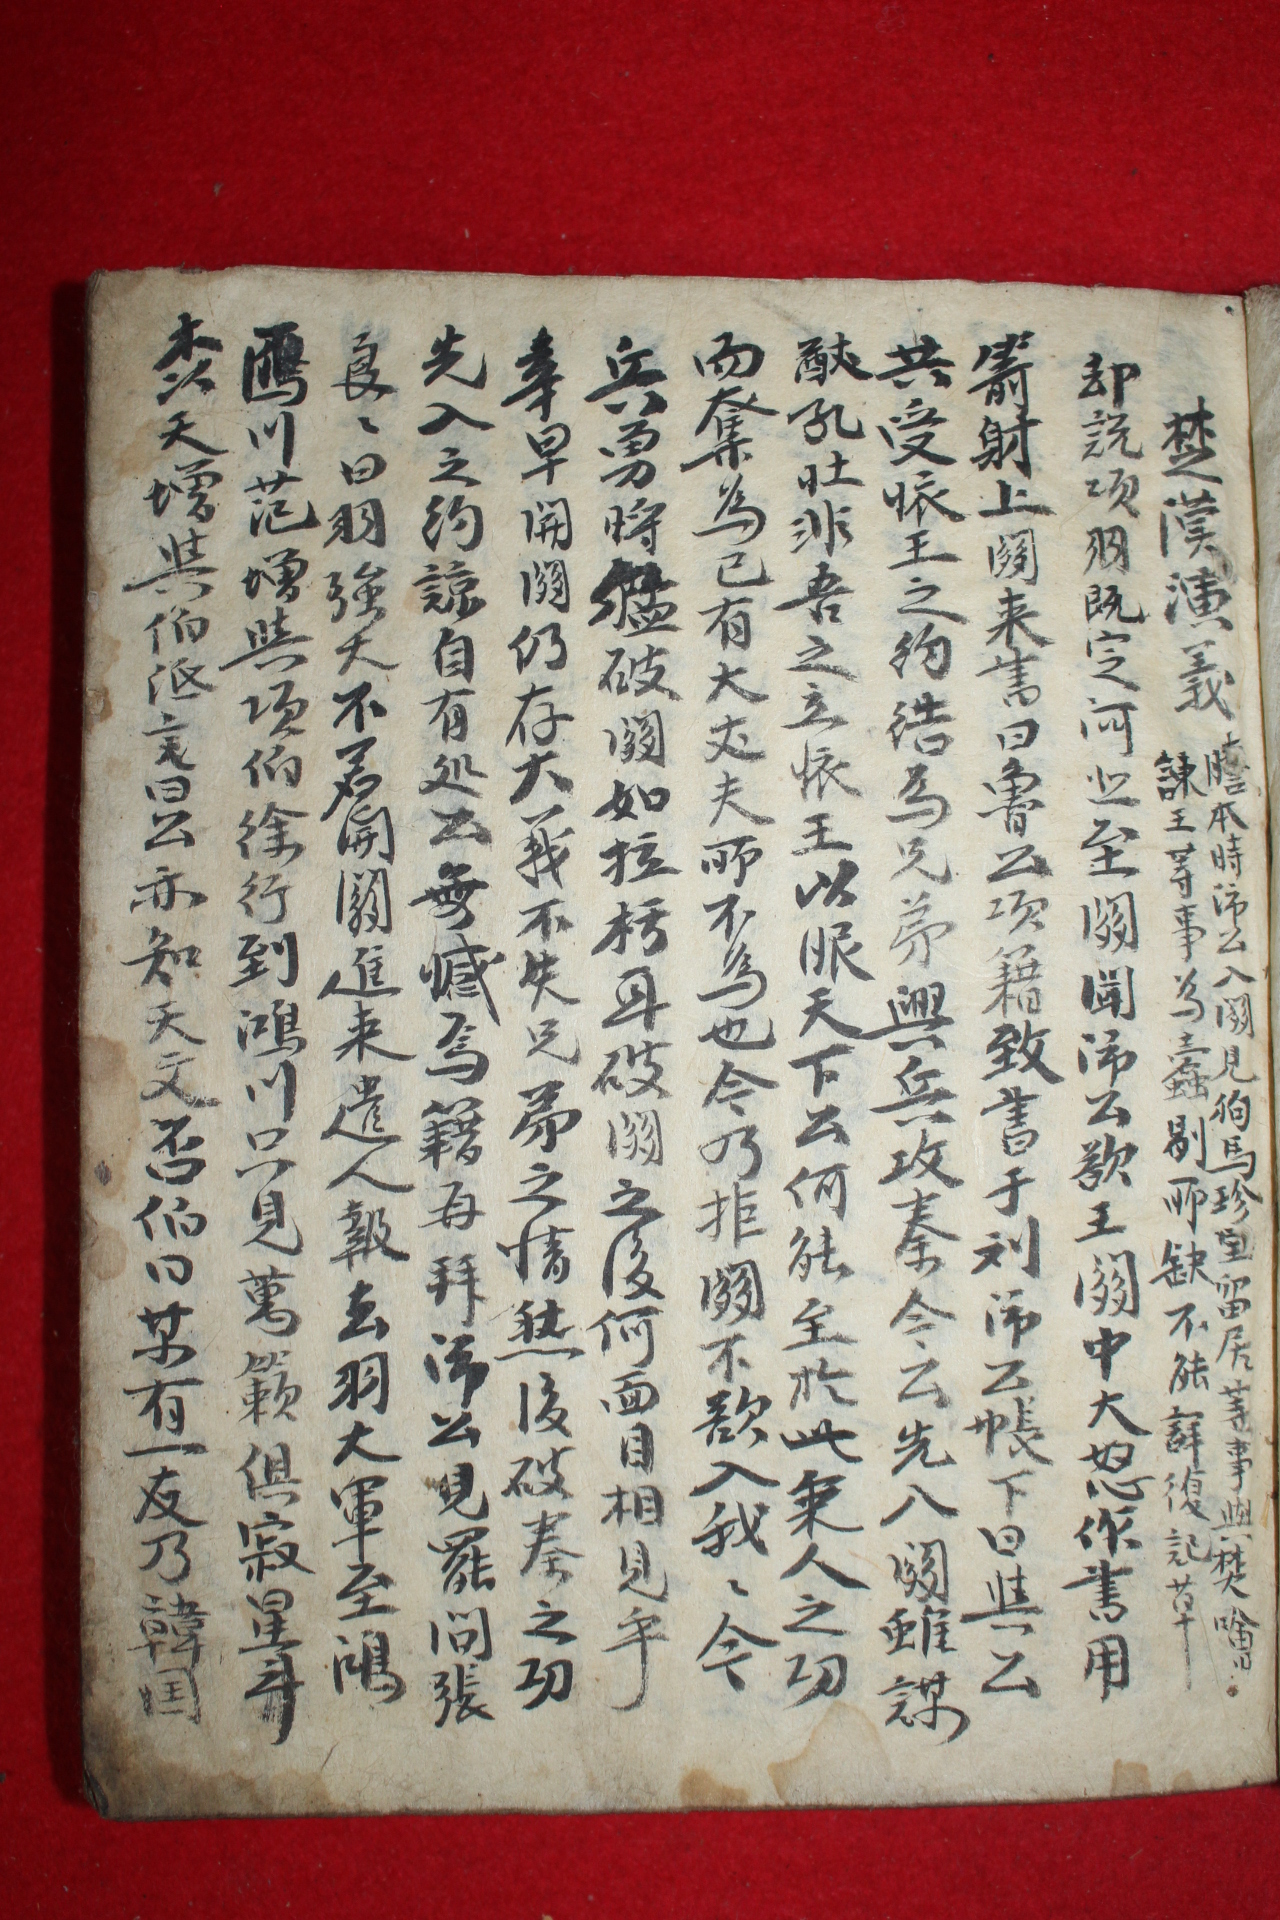 楚漢演義
謄本時沛公入關見狗馬珍宝留居等事與樊噲
諫王等事為蠹剝所缺不能詳復記草
却説項羽既定河北至關聞沛公欲王關中大怒作書用
箭射上關来書曰魯公項籍致書于刘沛公帳下曰与公
共受懐王之約結為兄弟興兵攻秦今公先入關雖謀
猷孔壮非吾之立懐王以服天下公何能至於此乗人之功
而奪為己有大丈夫所不為也今乃拒關不欲入我〻今
兵勇將猛破關如拉朽耳破關之後何面目相見乎
幸早開關仍存大義不失兄弟之情然後破秦之功
先入之約諒自有処公無憾焉籍再拜沛公見罷問張
良〻曰羽強大不若開關進来遣人報去羽大軍至鴻
門川范增與項伯徐行到鴻川只見萬籟俱寂星斗
天增與伯泛言曰公亦知天文否伯曰某有一友乃韓国